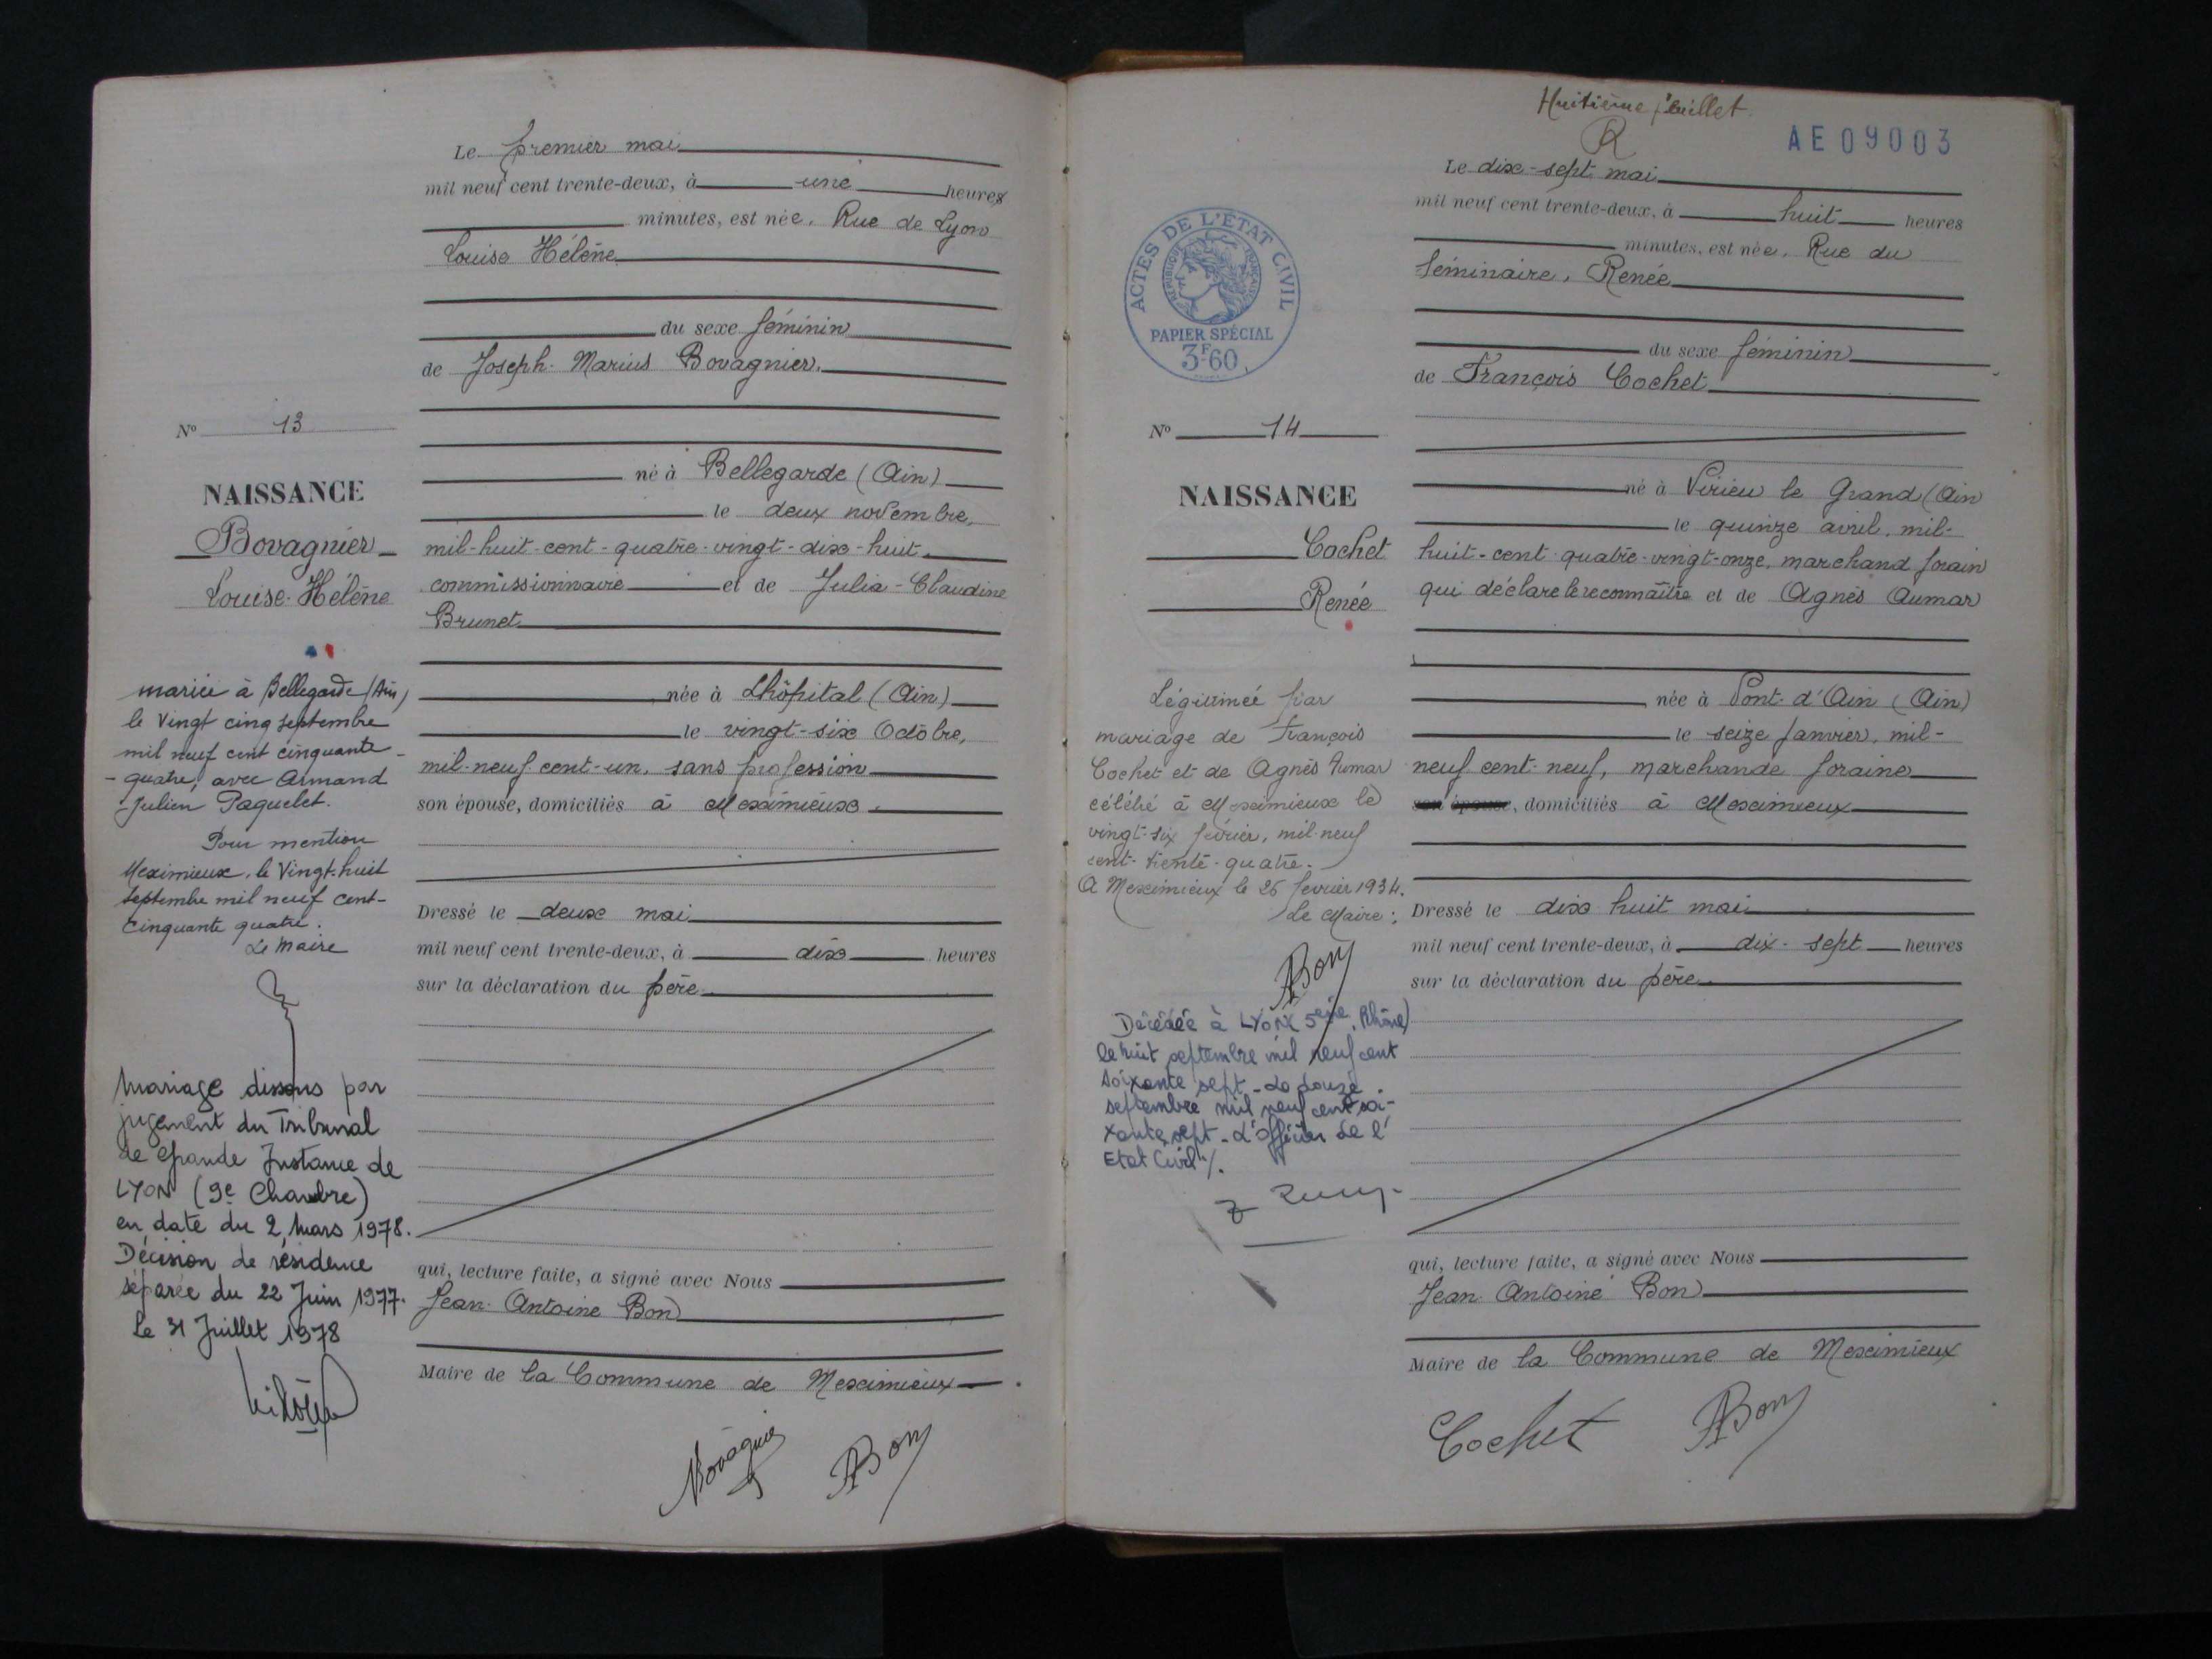 Le premier mai
mil neuf cent trente-deux, à une heures
minutes, est née, Rue de Lyon
Louise Hélène
du sexe féminin
de Joseph-Marius Bovagnier,
né à Bellegarde (Ain)
le deux novembre,
mil-huit-cent-quatre-vingt-dix-huit
commissionnaire et de Julia-Claudine
Brunet
née à Lhôpital (Ain)
le vingt-six Octobre,
mil-neuf-cent-un, sans profession
son épouse, domiciliés à Meximieux.
Dressé le deux mai
mil neuf cent trente-deux, à dix heures
sur la déclaration du père
qui, lecture faite, a signé avec Nous
Jean-Antoine Bon
Maire de la Commune de Meximieux
Bovagnier ABon
No 13
NAISSANCE
Bovagnier
Louise-Hélène
mariée à Bellegarde (Ain)
le vingt cinq septembre
mil neuf cent cinquante-
-quatre, avec Armand
Julien Paquelet.
Pour mention
Meximieux, le Vingt-huit
septembre mil neuf cent-
cinquante quatre.
Le Maire
Mariage dissous par
jugement du Tribunal
de Grande Instance de
LYON (9e Chambre)
en date du 2 Mars 1978.
Décision de résidence
séparée du 22 Juin 1977.
Le 31 Juillet 1978
Huitième feuillet
R
AE09003
Le dix-sept mai
mil neuf cent trente-deux, à huit heures
minutes, est née, Rue du
Séminaire, Renée
du sexe féminin
de François Cochet
né à Virieu le Grand (Ain
le quinze avril, mil-
huit-cent-quatre-vingt-onze, marchand forain
qui déclare le reconnaître et de Agnès Aumar
née à Pont-d'Ain (Ain)
le seize Janvier, mil-
neuf cent-neuf, marchande foraine
son épouse, domiciliés à Meximieux
Dressé le dix huit mai
mil neuf cent trente-deux, à dix-sept heures
sur la déclaration du père
qui, lecture faite, a signé avec Nous
Jean-Antoine Bon
Maire de la Commune de Meximieux
Cochet ABon
ACTES DE L'ÉTAT CIVIL
RÉPUBLIQUE FRANÇAISE
PAPIER SPÉCIAL
3F60
No 14
NAISSANCE
Cochet
Renée
Légitimée par
mariage de François
Cochet et de Agnès Aumar
célébré à Meximieux le
vingt-six février, mil-neuf
cent-trente-quatre.
A Meximieux le 26 février 1934.
Le Maire:
ABon
Décédée à LYON 5eme (Rhône)
le huit septembre mil neuf cent
soixante sept - Le douze
septembre mil neuf cent soi-
xante sept - L'officier de l'
Etat Civil %.